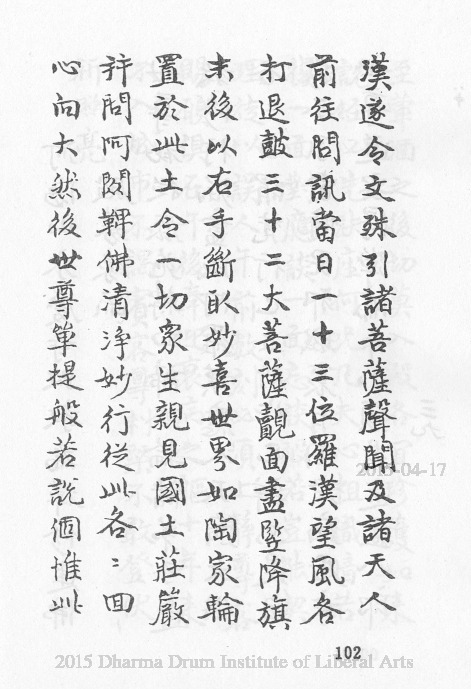 漢遂令文殊引諸菩薩聲聞及諸天人
前往問訊當日一十三位羅漢望風各
打退鼓三十二大菩薩覿面盡竪降旗
末後以右手斷取妙喜世界如陶家輪
置於此土令一切眾生親見國土莊嚴
并問阿閦鞞佛清淨妙行從此各〻回
心向大然後世尊單提般若說個惟此
2015-04-17
102
2015 Dharma Drum Institute of Liberal Arts